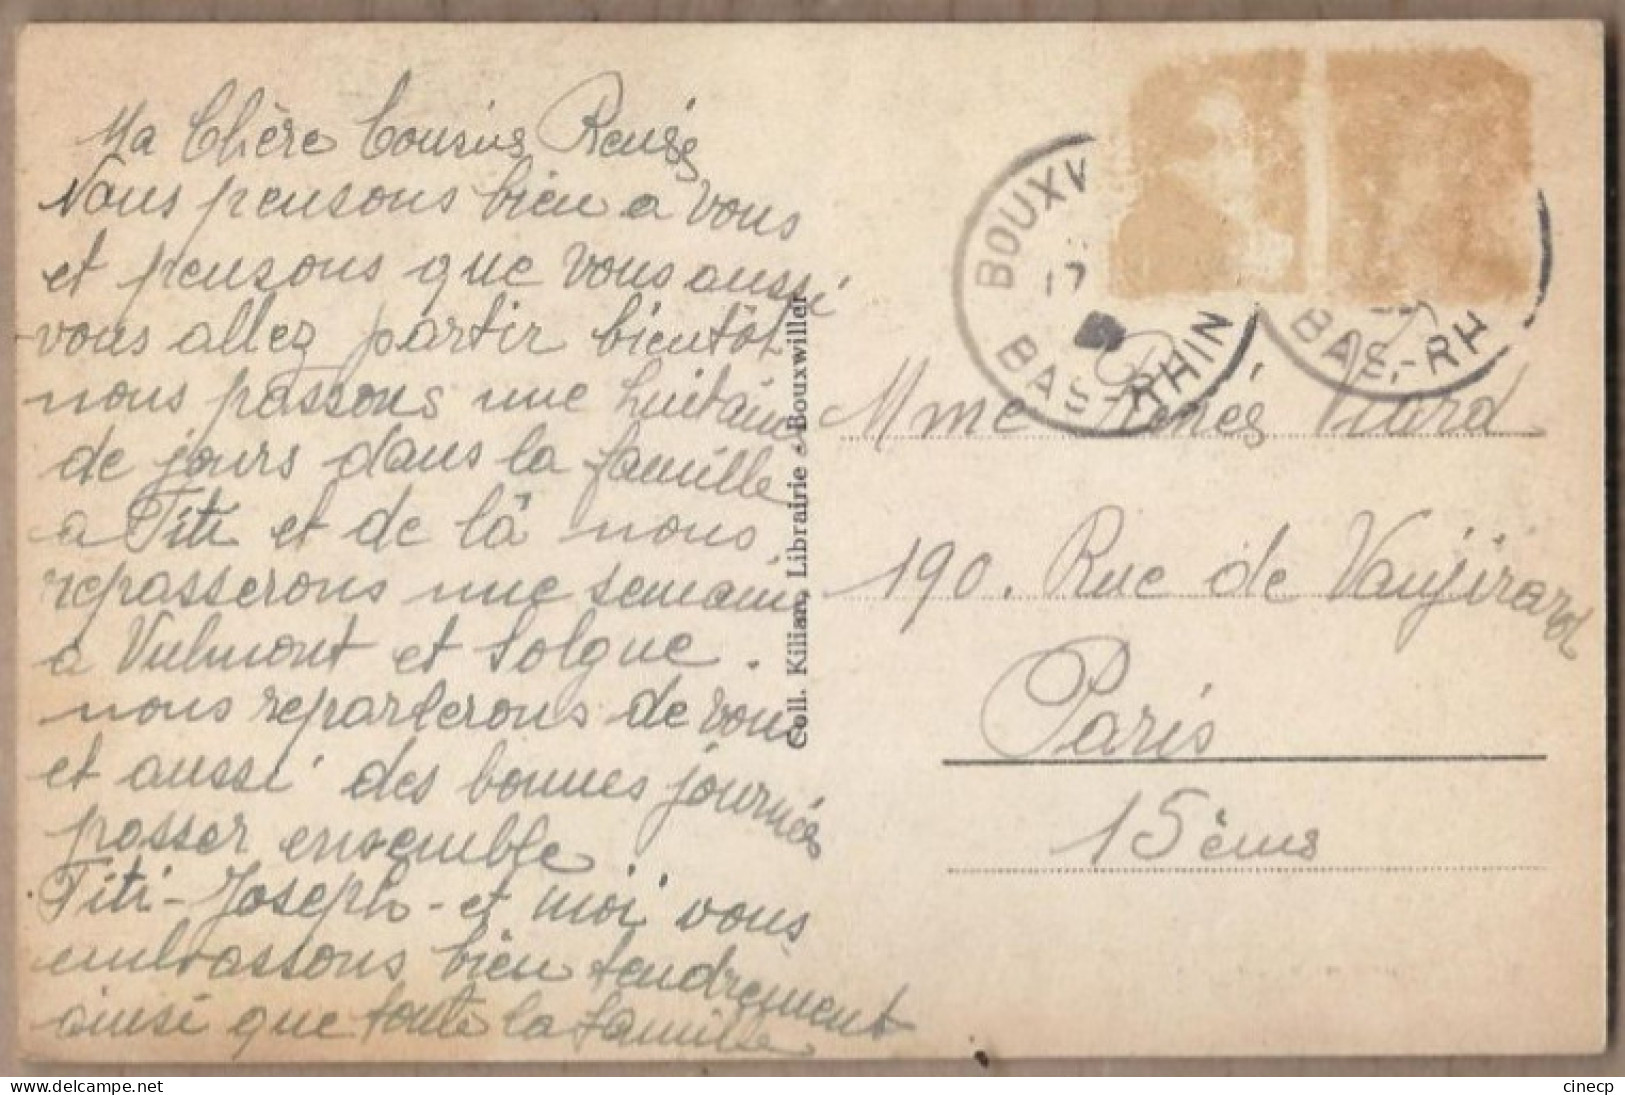 Ma Chère Cousine Renée
Nous pensons bien a vous
et pensons que vous aussi
vous allez partir bientôt
nous passons une huitaine
de jours dans la famille
a Titi et de là nous
repasserons une semaine
a Vulmont et Solgne.
nous reparlerons de vous
et aussi des bonnes journés
passer ensemble
Titi-Joseph-et moi vous
embrassons bien tendrement
ainsi que toute la famille
Coll. Kilian, Librairie - Bouxwiller
BOUXV
17
BAS-RHIN
BAS.-RH
Mme Renés Viard
190. Rue de Vaujirard
Paris
15ème
cinecp
www.delcampe.net